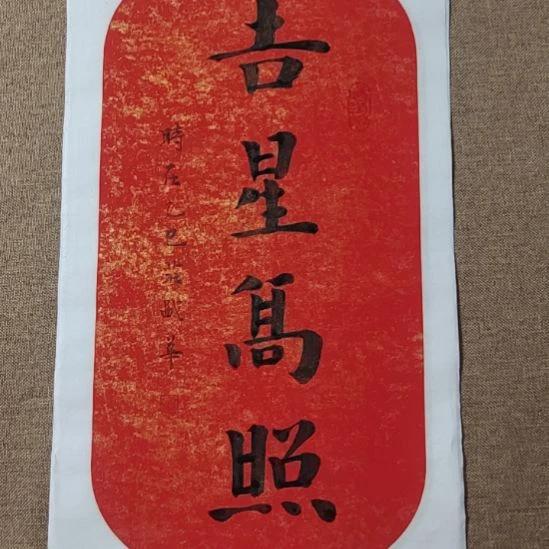 吉星高照
時在乙巳